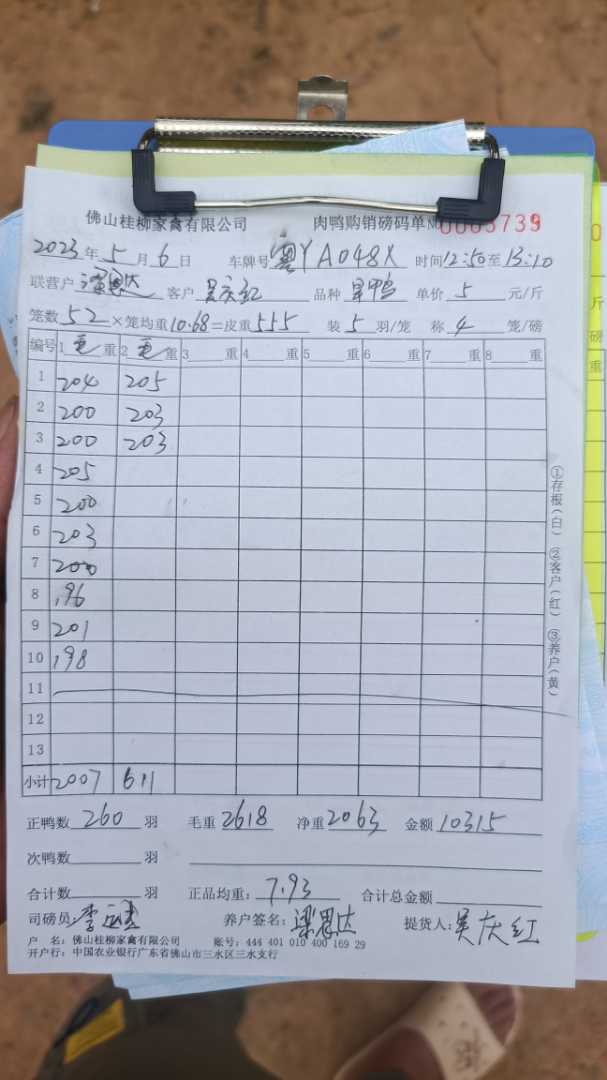 佛山桂柳家禽有限公司 肉鸭购销磅码单 № 0003739
2023年5月6日 车牌号 粤YA048X 时间12:50至13:10
联营户 梁恩达 客户 吴庆红 品种 旱鸭 单价 5 元/斤
笼数 52 ×笼均重10.68=皮重555 装 5 羽/笼 称 4 笼/磅
编号 1 毛 重 2 毛 重 3 重 4 重 5 重 6 重 7 重 8 重
1 204 205
2 200 203
3 200 203
4 205
5 200
6 203
7 200
8 196
9 201
10 198
11
12
13
小计 2007 611
正鸭数 260 羽 毛重 2618 净重 2063 金额 10315
次鸭数 羽
合计数 羽 正品均重: 7.93 合计总金额
司磅员: 李 养户签名: 梁恩达 提货人: 吴庆红
户 名: 佛山桂柳家禽有限公司 账号: 444 401 010 400 169 29
开户行: 中国农业银行广东省佛山市三水区三水支行
①存根(白) ②客户(红) ③养户(黄)